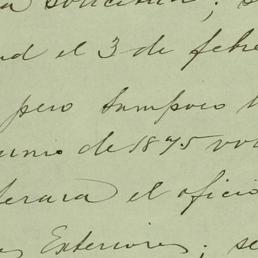 a solicitud; s
d el 3 de febre
pero tampoco
unio de 1875 vol
terara el oficio
es Exteriores; se